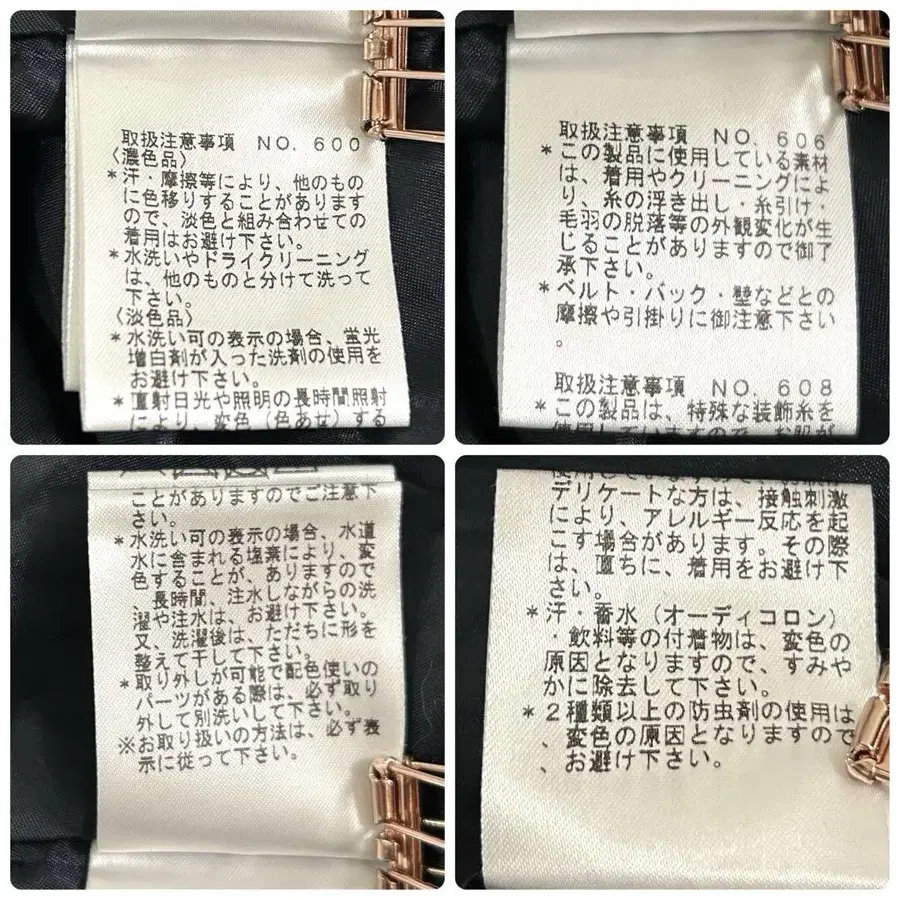 取扱注意事項 NO. 600
〈濃色品〉
*汗・摩擦等により、他のもの
に色移りすることがあります
ので、淡色と組み合わせての
着用はお避け下さい。
*水洗いやドライクリーニング
は、他のものと分けて洗って
下さい。
〈淡色品〉
*水洗い可の表示の場合、蛍光
増白剤が入った洗剤の使用を
お避け下さい。
*直射日光や照明の長時間照射
により、変色(色あせ)する
取扱注意事項 NO. 606
*この製品に使用している素材
は、着用やクリーニングによ
り、糸の浮き出し・糸引け・
毛羽の脱落等の外観変化が生
じることがありますので御了
承下さい。
*ベルト・バック・壁などとの
摩擦や引掛りに御注意下さい
。
取扱注意事項 NO. 608
*この製品は、特殊な装飾糸を
使用していますので、お肌が
ことがありますのでご注意下
さい。
*水洗い可の表示の場合、水道
水に含まれる塩素により、変
色することが、ありますので
、長時間、注水しながらの洗
濯や注水は、お避け下さい。
又、洗濯後は、ただちに形を
整えて干して下さい。
*取り外しが可能で配色使いの
パーツがある際は、必ず取り
外して別洗いして下さい。
※お取り扱いの方法は、必ず表
示に従って下さい。
デリケートな方は、接触刺激
により、アレルギー反応を起
こす場合があります。その際
は、直ちに、着用をお避け下
さい。
*汗・香水(オーディコロン)
・飲料等の付着物は、変色の
原因となりますので、すみや
かに除去して下さい。
*2種類以上の防虫剤の使用は
、変色の原因となりますので
、お避け下さい。